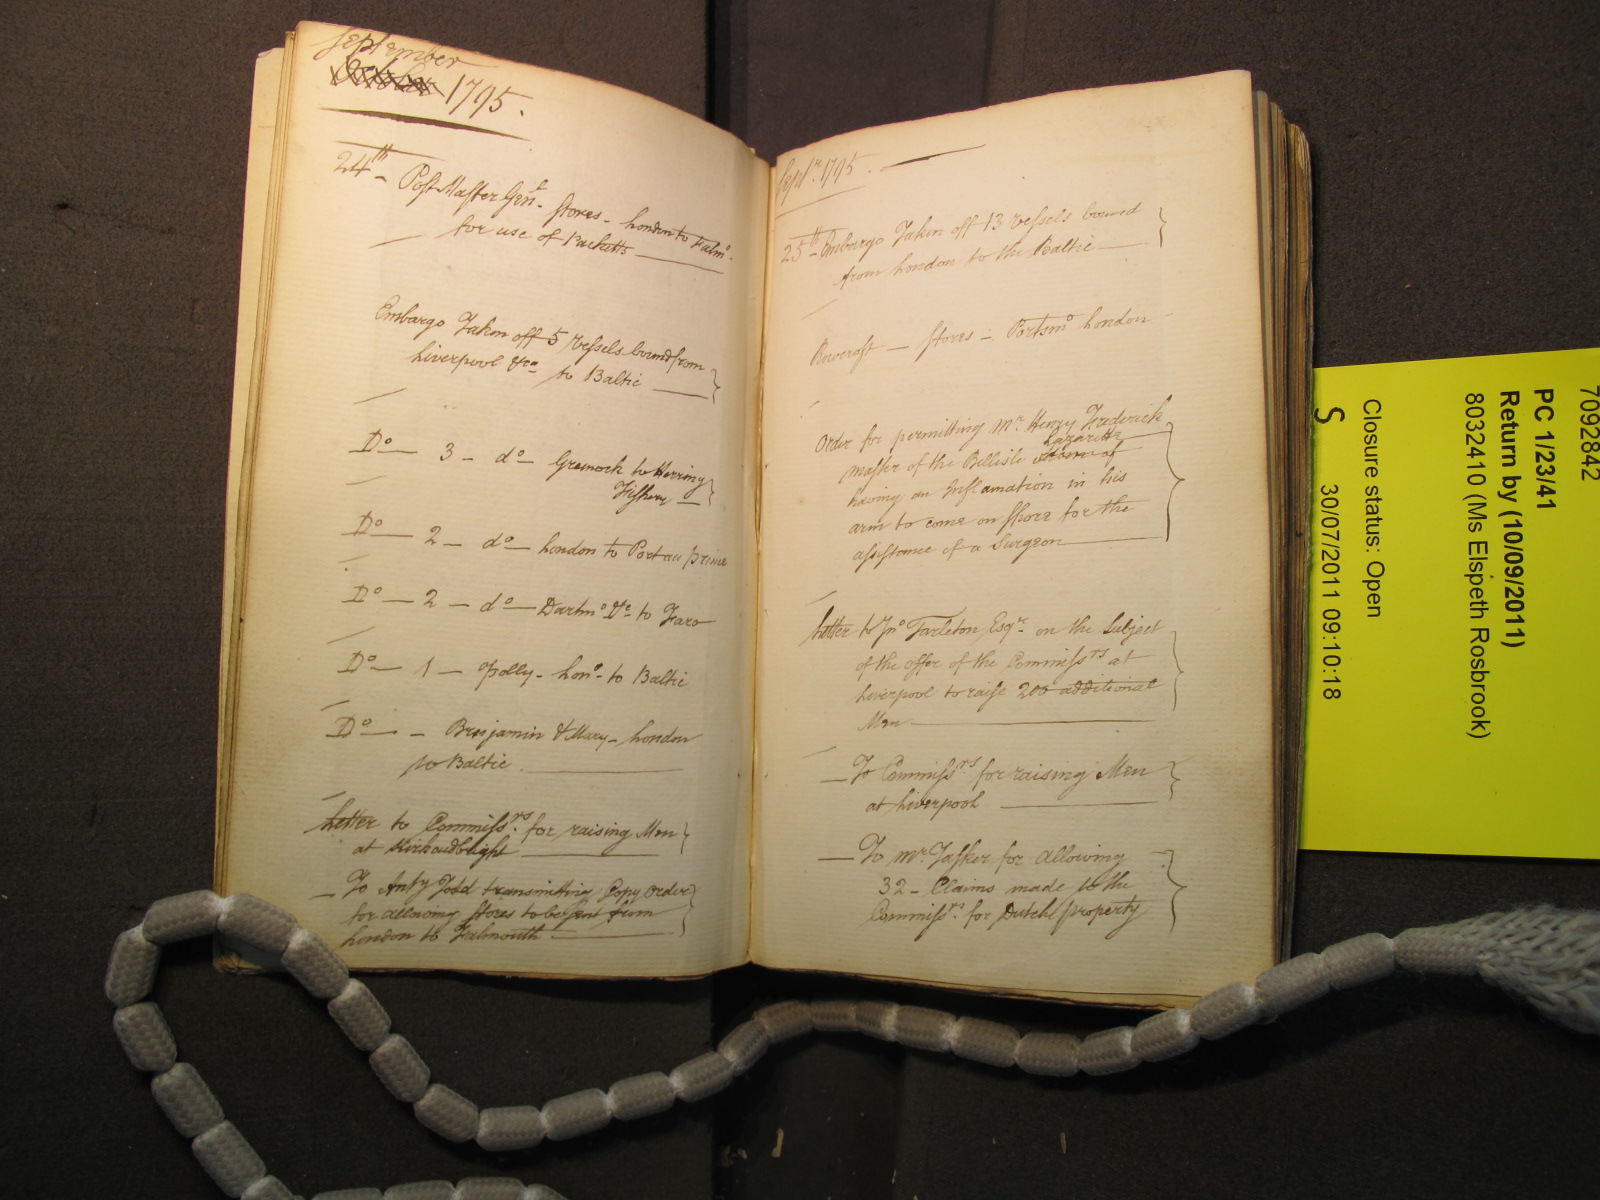 September
1795.
24th - Post Master Genl. Stores - London to Falmo.
for use of Packetts
Embargo Taken off 5 Vessels bound from
Liverpool &ca to Baltic
Do — 3 - do - Greenock to Herring
Fishery
Do — 2 - do - London to Port au prince
Do — 2 - do - Dartmo &c to Faro
Do — 1 - Polly - Lono. to Baltic
Do — - Benjamin & Mary - London
to Baltic.
Letter to Commissrs. for raising Men
at Kirkcudbright
- To Anty Todd transmitting Copy Order
for allowing Stores to be sent from
London to Falmouth
Septr. 1795.
25th - Embargo Taken off 13 Vessels bound
from London to the Baltic
Bowcroft - Stores - Portsmo London
Order for permitting Mr. Henry Frederick
Lazarette
master of the Bellisle
having an Inflamation in his
arm to come on Shore for the
assistance of a Surgeon
Letter to Jno Tarleton Esqr. on the Subject
of the offer of the Commissrs at
Liverpool to raise 200 additional
Men
- To Commissrs. for raising Men
at Liverpool
- To Mr. Tasker for allowing
32 - Claims made to the
Commissrs. for Dutch property
7092842
PC 1/23/41
Return by (10/09/2011)
8032410 (Ms Elspeth Rosbrook)
Closure status: Open
S 30/07/2011 09:10:18